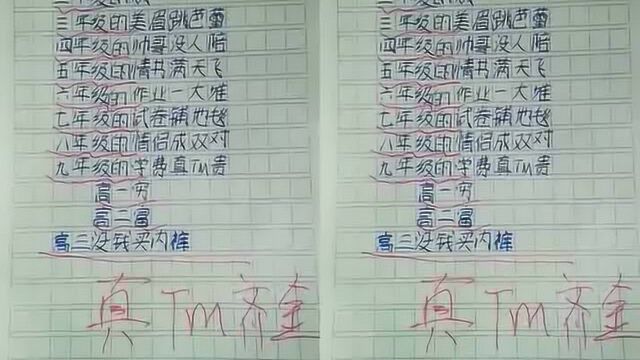 三年级的美眉跳芭蕾
四年级的帅哥没人陪
五年级的情书满天飞
六年级的作业一大堆
七年级的试卷铺地毯
八年级的情侣成双对
九年级的学费真TM贵
高一穷
高二富
高三没钱买内裤
真Tm齐全
三年级的美眉跳芭蕾
四年级的帅哥没人陪
五年级的情书满天飞
六年级的作业一大堆
七年级的试卷铺地毯
八年级的情侣成双对
九年级的学费真TM贵
高一穷
高二富
高三没钱买内裤
真Tm齐全